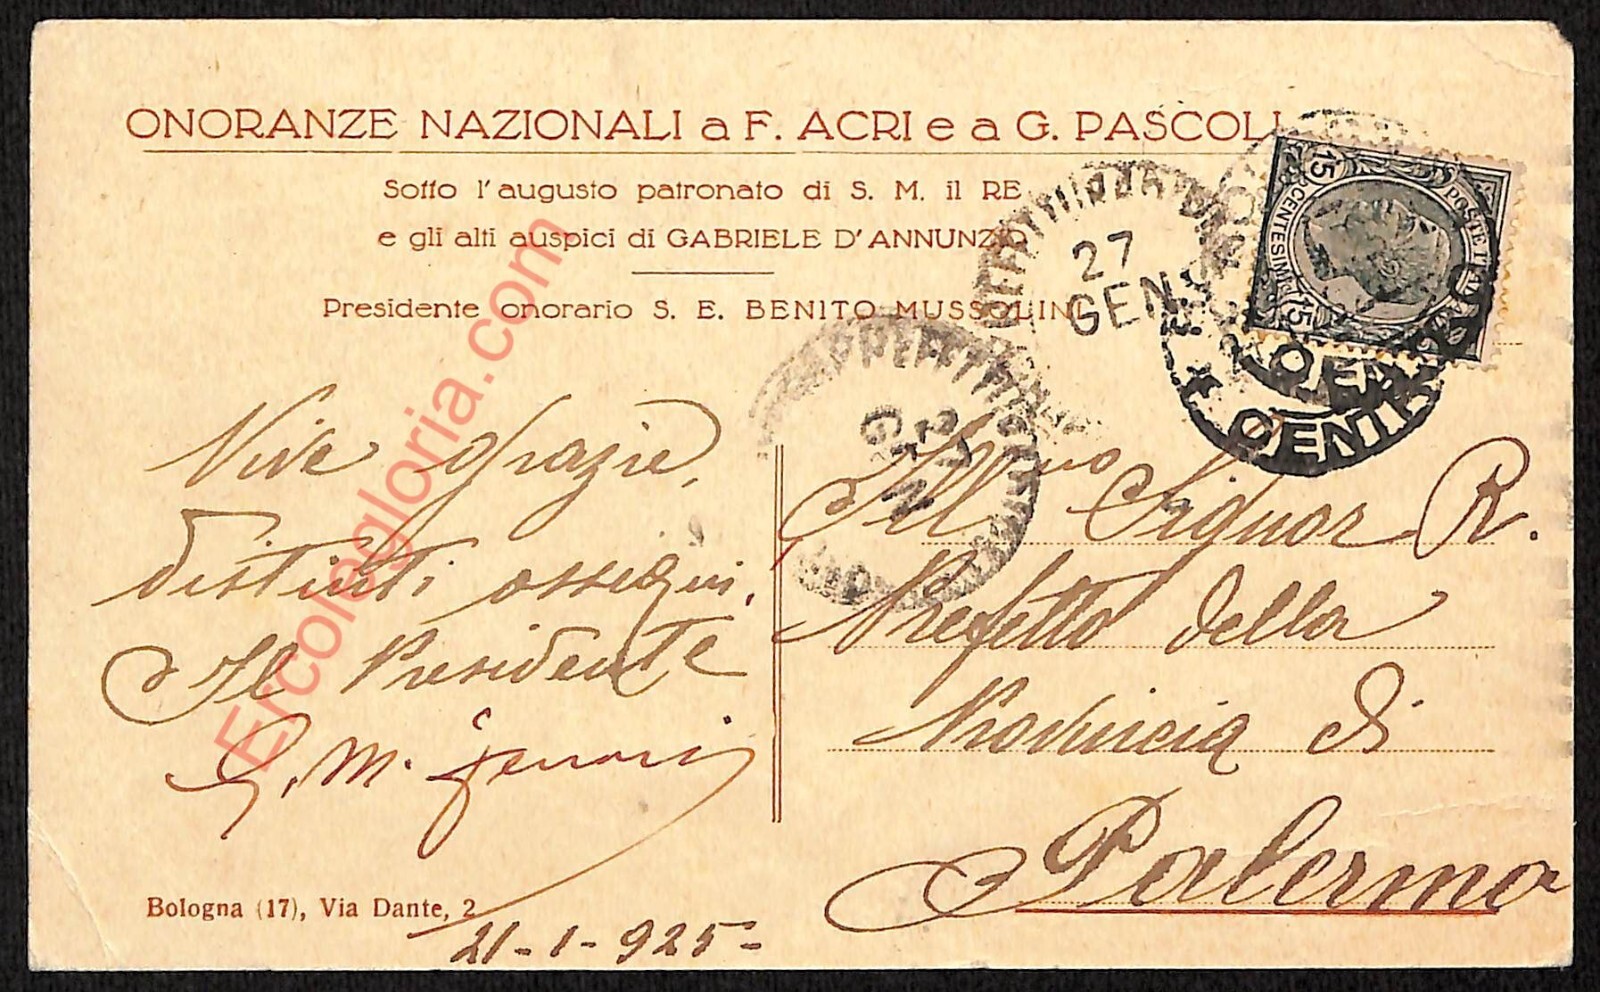 ONORANZE NAZIONALI a F. ACRI e a G. PASCOLI
Sotto l'augusto patronato di S. M. il RE
e gli alti auspici di GABRIELE D'ANNUNZIO
Presidente onorario S. E. BENITO MUSSOLINI
POSTE ITALIANE
15 CENTESIMI 15
27
GEN
27
GEN
CENTRO
Vive grazie,
distinti ossequi.
Il Presidente
G. M.
Bologna (17), Via Dante, 2
21-1-925-
Ill.mo Signor R.
Prefetto della
Provincia di
Palermo
Ercolegloria.com